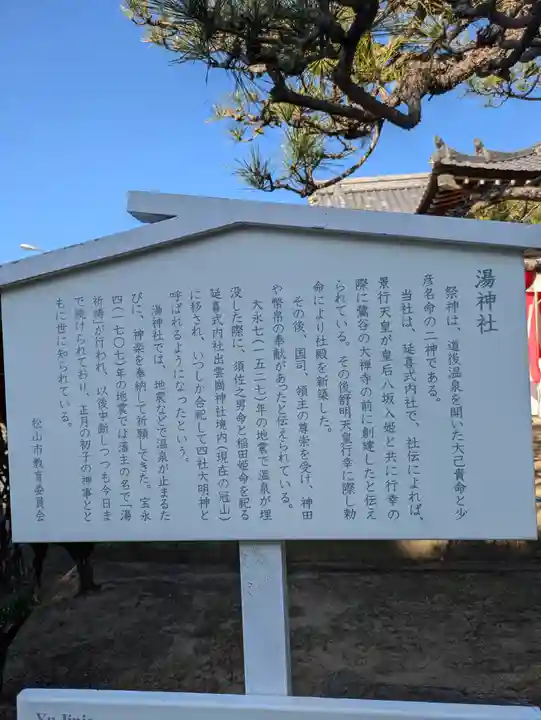 湯神社
祭神は、道後温泉を開いた大己貴命と少
彦名命の二神である。
当社は、延喜式内社で、社伝によれば、
景行天皇が皇后八坂入姫と共に行幸の
際に鷺谷の大禅寺の前に創建したと伝え
られている。その後舒明天皇行幸に際し勅
命により社殿を新築した。
その後、国司、領主の尊崇を受け、神田
や幣帛の奉献があったと伝えられている。
大永七(一五二七)年の地震で温泉が埋
没した際に、須佐之男命と稲田姫命を祀る
延喜式内社出雲崗神社境内(現在の冠山)
に移され、いつしか合祀して四社大明神と
呼ばれるようになったという。
湯神社では、地震などで温泉が止まるた
びに、神楽を奉納して祈願してきた。宝永
四(一七〇七)年の地震では藩主の名で「湯
祈祷」が行われ、以後中断しつつも今日ま
で続けられており、正月の初子の神事とと
もに世に知られている。
松山市教育委員会
Yu Jinja